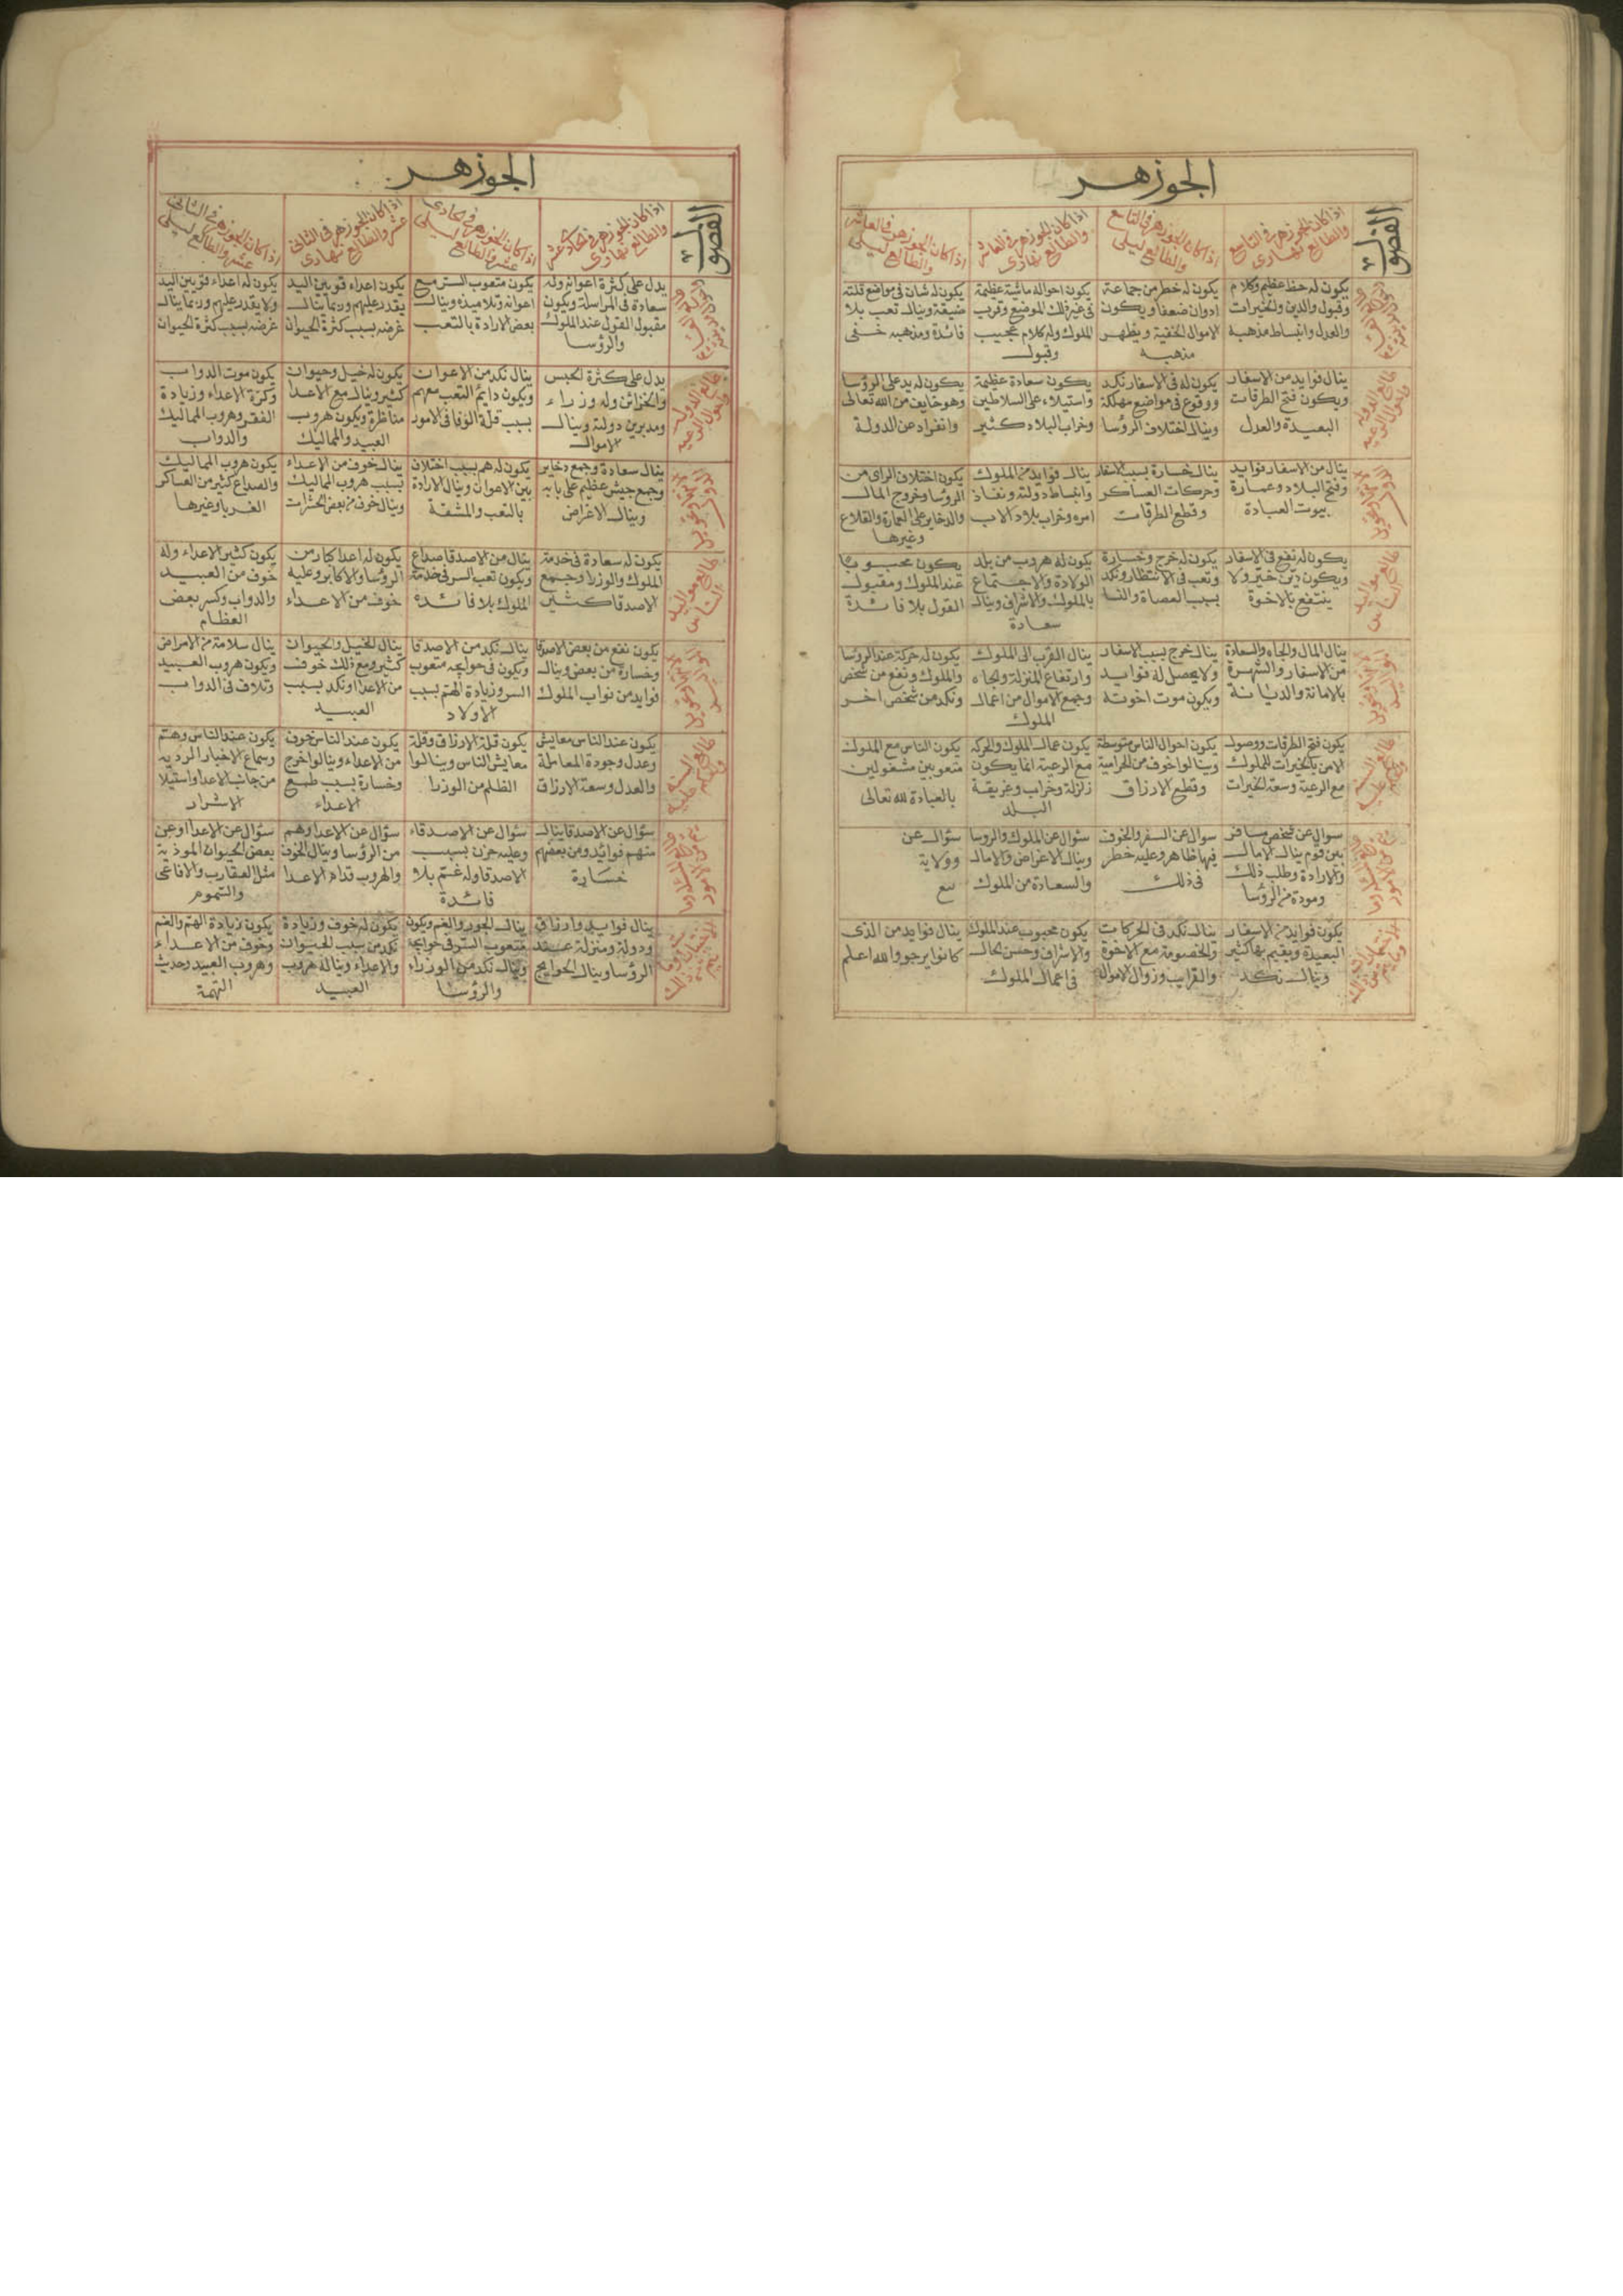 الجوزهر
الفصول
اذا كان الجوزهر في التاسع
والطالع نهاري
اذا كان الجوزهر في التاسع
والطالع ليلي
اذا كان الجوزهر في العاشر
والطالع نهاري
اذا كان الجوزهر في العاشر
والطالع ليلي
يكون له حظ عظيم وكلام
وقبول والدين والخيرات
والعدل وانبساط مذهبه
يكون له خطر من جماعة
ادوان ضعفا ويكون
الاموال الخفية ويظهر
مذهبه
يكون احواله ماشية عظيمة
في غير ذلك الموضع وقرب
الملوك وله كلام عجيب
وقبول
يكون له شان في مواضع قلته
ضيقة وينال تعب بلا
فائدة ومذهبه خفي
طالع الدولة
ينال فوايد من الاسفار
ويكون فتح الطرقات
البعيدة والعدل
يكون له في الاسفار نكد
ووقوع في مواضع مهلكة
وينال اختلاف الرؤسا
يكون سعادة عظيمة
واستيلاء على السلاطين
وخراب البلاد كثير
يكون له يد على الرؤسا
وهو خايف من الله تعالى
وانفراد عن الدولة
ينال من الاسفار فوايد
وفتح البلاد وعمارة
بيوت العبادة
ينال خسارة بسبب الاسفار
وحركات العساكر
وقطع الطرقات
ينال فوايد من الملوك
وانبساط دولته ونفاذ
امره وخراب بلاد الاب
يكون اختلاف الراى من
الرؤسا وخروج المال
والدخاير على العمارة والقلاع
وغيرها
طالع مواليد
الناس
يكون له نفع في الاسفار
ويكون دين خير ولا
ينتفع بالاخوة
يكون له خرج وخسارة
وتعب في الانتظار ونكد
بسبب العصاة والنسا
يكون له هروب من بلد
الولادة والاجتماع
بالملوك والاشراف وينال
سعادة
يكون محبوبا
عند الملوك ومقبول
القول بلا فائدة
ينال المال والجاه والسعادة
من الاسفار والشهرة
بالامانة والديانة
ينال خرج بسبب الاسفار
ولا يحصل له فوايد
ويكون موت اخوته
ينال القرب الى الملوك
وارتفاع المنزلة والجاه
وجمع الاموال من اعمال
الملوك
يكون له حركة عند الرؤسا
والملوك ونفع من شخص
ونكد من شخص اخر
يكون فتح الطرقات ووصول
الامن بالخيرات للملوك
مع الرعية وسعة الخيرات
يكون احوال الناس متوسطة
وينالوا خوف من الحرامية
وقطع الارزاق
يكون عمال الملوك والحركة
مع الرعية انما يكون
زلزلة وخراب وغريقة
البلد
يكون الناس مع الملوك
متعوبين مشغولين
بالعبادة لله تعالى
سوال عن شخص مسافر
بين قوم ينال الامال
والارادة وطلب ذلك
ومودة من الرؤسا
سوال عن السفر والخوف
فيها ظاهر وعليه خطر
في ذلك
سؤال عن الملوك والروسا
وينال الاغراض والامال
والسعادة من الملوك
سؤال عن
وولاية
بيع
يكون فوايد من الاسفار
البعيدة ويقيم بها كثير
وينال نكد
ينال نكد في الحركات
والخصومة مع الاخوة
والقرايب وزوال الاموال
يكون محبوب عند الملوك
والاشراف وحسن الحال
في اعمال الملوك
ينال فوايد من الذي
كانوا يرجو والله اعلم
الجوزهر
الفصول
اذا كان الجوزهر في الحادي عشر
والطالع نهاري
اذا كان الجوزهر في الحادي
عشر والطالع ليلي
اذا كان الجوزهر في الثاني
عشر والطالع نهاري
اذا كان الجوزهر في الثاني
عشر والطالع ليلي
يدل على كثرة اعوانه وله
سعادة في المراسلة ويكون
مقبول القول عند الملوك
والرؤسا
يكون متعوب السر مع
اعوانه وتلاميذه وينال
بعض الارادة بالتعب
يكون اعداء قويين اليد
يقدر عليهم وربما ينال
غرضه بسبب كثرة الحيوان
يكون له اعداء قويين اليد
ولا يقدر عليهم وربما ينال
غرضه بسبب كثرة الحيوان
طالع الدولة
يدل على كثرة الحبس
والخزائن وله وزراء
ومدبرين دولته وينال
الاموال
ينال نكد من الاعوان
ويكون دايم التعب معهم
بسبب قلة الوفا في الامور
يكون له خيل وحيوان
كثير وينال مع الاعدا
مناظرة ويكون هروب
العبيد والمماليك
يكون موت الدواب
وكثرة الاعداء وزيادة
الفقر وهروب المماليك
والدواب
ينال سعادة وجمع دخاير
وجمع جيش عظيم على بابه
وينال الاغراض
يكون له هم بسبب اختلاف
بين الاعوان وينال الارادة
بالتعب والمشقة
ينال خوف من الاعداء
بسبب هروب المماليك
وينال خوف من بعض الحشرات
يكون هروب المماليك
والصداع كثير من العساكر
الغربا وغيرها
طالع مواليد
الناس
يكون له سعادة في خدمة
الملوك والوزرا وجمع
الاصدقا كثير
ينال من الاصدقا صداع
ويكون تعب السر في خدمة
الملوك بلا فائدة
يكون له اعدا كبار من
الرؤسا والاكابر وعليه
خوف من الاعداء
يكون كثير الاعداء وله
خوف من العبيد
والدواب وكسر بعض
العظام
يكون نفع من بعض الاصدقا
وخسارة من بعض وينال
فوايد من نواب الملوك
ينال نكد من الاصدقا
ويكون في حوايجه متعوب
السر وزيادة الهم بسبب
الاولاد
ينال الخيل والحيوان
كثير ومع ذلك خوف
من الاعدا ونكد بسبب
العبيد
ينال سلامة من الامراض
ويكون هروب العبيد
وتلاف في الدواب
يكون عند الناس معايش
وعدل وجودة المعاملة
والعدل وسعة الارزاق
يكون قلة الارزاق وقلة
معايش الناس وينالوا
الظلم من الوزرا
يكون عند الناس خوف
من الاعداء وينالوا خرج
وخسارة بسبب طمع
الاعداء
يكون عند الناس وهم
وسماع الاخبار الردية
من جانب الاعدا واستيلا
الاشرار
سؤال عن الاصدقا ينال
منهم فوايد ومن بعضهم
خسارة
سؤال عن الاصدقاء
وعليه حزن بسبب
الاصدقا وله غم بلا
فائدة
سؤال عن الاعدا وهم
من الرؤسا وينال الخوف
والهروب قدام الاعدا
سؤال عن الاعدا وعن
بعض الحيوان الموذية
مثل العقارب والافاعي
والسموم
ينال فوايد وارزاق
ودولة ومنزلة عند
الرؤسا وينال الحوايج
ينال الجور والغم ويكون
متعوب السر في حوايجه
وينال نكد من الوزراء
والرؤسا
يكون له خوف وزيادة
نكد من سبب الحيوان
والاعداء وينال هروب
العبيد
يكون زيادة الهم والغم
وخوف من الاعداء
وهروب العبيد وحدث
التهمة